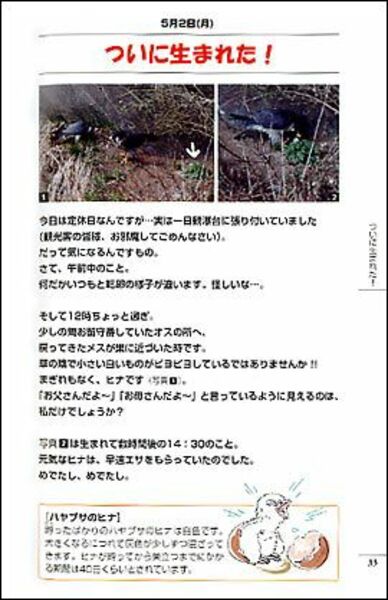 5月2日(月)
ついに生まれた！
1
2
今日は定休日なんですが…実は一日観瀑台に張り付いていました
(観光客の皆様、お邪魔してごめんなさい)。
だって気になるんですもの。
さて、午前中のこと。
何だかいつもと抱卵の様子が違います。怪しいな…。
そして12時ちょっと過ぎ。
少しの間お留守番していたオスの所へ、
戻ってきたメスが巣に近づいた時です。
草の陰で小さい白いものがピヨピヨしているではありませんか!!
まぎれもなく、ヒナです(写真1)。
「お父さんだよ〜」「お母さんだよ〜」と言っているように見えるのは、
私だけでしょうか？
写真2は生まれて数時間後の14：30のこと。
元気なヒナは、早速エサをもらっていたのでした。
めでたし、めでたし。
[ハヤブサのヒナ]
孵ったばかりのハヤブサのヒナは白色です。
大きくなるにつれて灰色が少しずつ混ざって
きます。ヒナが孵ってから巣立つまでにかか
る期間は40日くらいとされています。
33